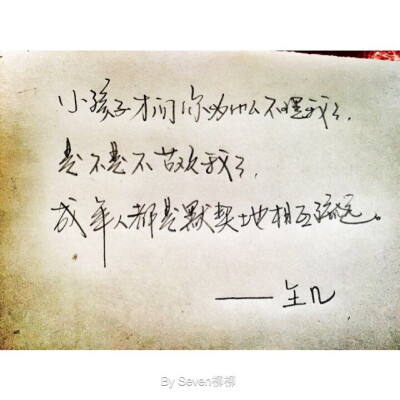 小孩子才问你为什么不理我了，
是不是不喜欢我了，
成年人都是默契地相互疏远。
——
By Seven柳柳